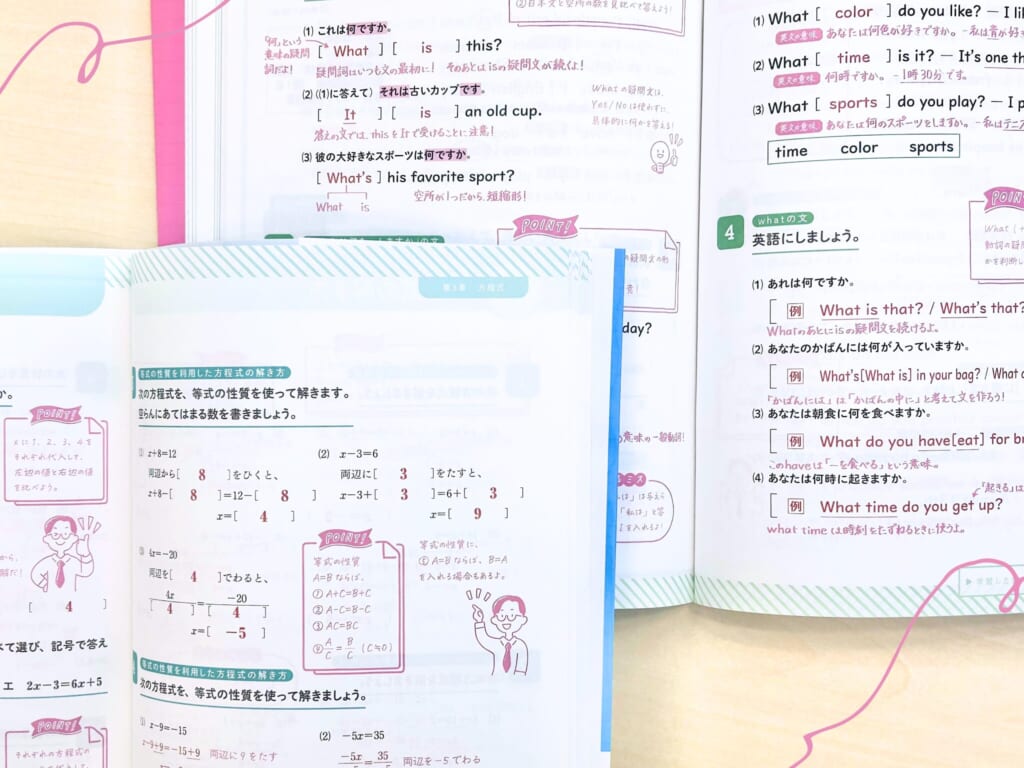 ②日本文と空所の数を見比べて答えよう!
(1) これは何ですか。
「何」という
意味の疑問
詞だよ!
[ What ] [ is ] this?
疑問詞はいつも文の最初に! そのあとはisの疑問文が続くよ!
(2) ((1)に答えて) それは古いカップです。
[ It ] [ is ] an old cup.
答えの文では、thisをItで受けることに注意!
Whatの疑問文は、
Yes/Noは使わずに、
具体的に何かを答える!
(3) 彼の大好きなスポーツは何ですか。
[ What's ] his favorite sport?
What is
空所が1つだから、短縮形!
POINT!
の疑問文の形
day?
の意味の一般動詞!
ミス
(1) What [ color ] do you like? — I li
英文の意味 あなたは何色が好きですか。-私は青が好き
(2) What [ time ] is it? — It's one th
英文の意味 何時ですか。-1時30分です。
(3) What [ sports ] do you play? — I p
英文の意味 あなたは何のスポーツをしますか。-私はテニス
time color sports
4 whatの文
英語にしましょう。
POINT!
What (+
動詞の疑問
かを判断し
(1) あれは何ですか。
[ 例 What is that? / What's that?
Whatのあとにisの疑問文を続けるよ。
(2) あなたのかばんには何が入っていますか。
[ 例 What's[What is] in your bag? / What
「かばんには」は「かばんの中に」と考えて文を作ろう!
(3) あなたは朝食に何を食べますか。
[ 例 What do you have[eat] for br
このhaveは「~を食べる」という意味。
(4) あなたは何時に起きますか。
「起きる」は
[ 例 What time do you get up?
what timeは時刻をたずねるときに使うよ。
▶学習した
か。
POINT!
xに1、2、3、4を
それぞれ代入して、
左辺の値と右辺の値
を比べよう。
から、
解だ!
[ 4 ]
べて選び、記号で答え
エ 2x−3=6x+5
POINT!
それぞれの方程式の
第3章 方程式
等式の性質を利用した方程式の解き方
次の方程式を、等式の性質を使って解きます。
空らんにあてはまる数を書きましょう。
x+8=12
両辺から[ 8 ]をひくと、
x+8−[ 8 ]=12−[ 8 ]
x=[ 4 ]
(2) x−3=6
両辺に[ 3 ]をたすと、
x−3+[ 3 ]=6+[ 3 ]
x=[ 9 ]
4x=−20
両辺を[ 4 ]でわると、
4x/[ 4 ]=−20/[ 4 ]
x=[ −5 ]
POINT!
等式の性質
A=Bならば、
① A+C=B+C
② A−C=B−C
③ AC=BC
④ A/C=B/C (C≠0)
等式の性質に、
⑤ A=Bならば、B=A
を入れる場合もあるよ。
等式の性質を利用した方程式の解き方
次の方程式を、等式の性質を使って解きましょう。
(1) x−9=−15
x−9+9=−15+9 両辺に9をたす
(2) −5x=35
−5x 35 両辺を−5でわる